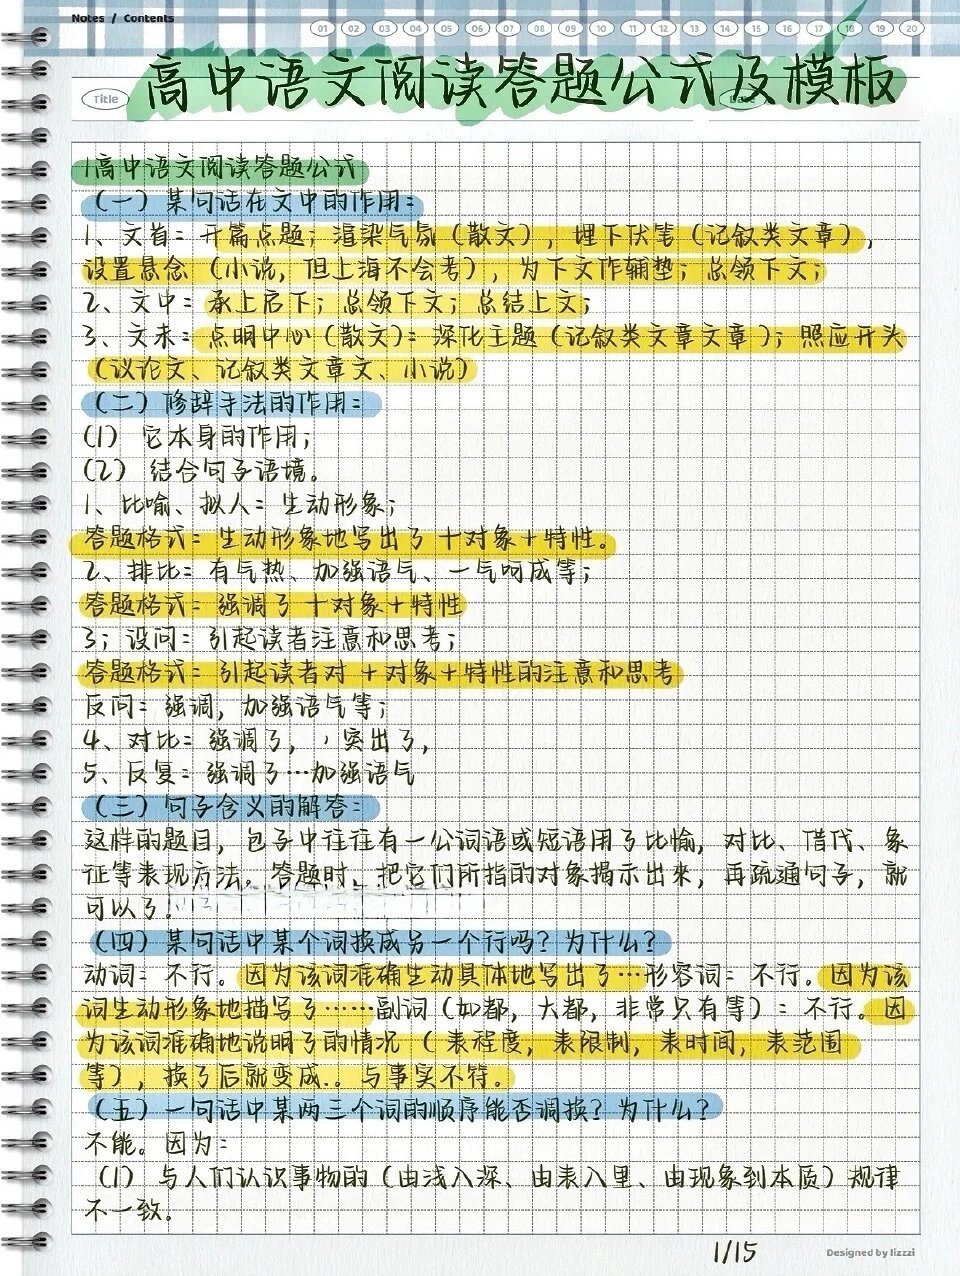 Notes / Contents
01 02 03 04 05 06 07 08 09 10 11 12 13 14 15 16 17 18 19 20
高中语文阅读答题公式及模板
Title
Date
1高中语文阅读答题公式
（一）某句话在文中的作用：
1、文首：开篇点题；渲染气氛（散文），埋下伏笔（记叙类文章），
设置悬念（小说，但上海不会考），为下文作辅垫；总领下文；
2、文中：承上启下；总领下文；总结上文；
3、文末：点明中心（散文）：深化主题（记叙类文章文章）；照应开头
（议论文、记叙类文章文、小说）
（二）修辞手法的作用：
(1) 它本身的作用；
(2) 结合句子语境。
1、比喻、拟人：生动形象；
答题格式：生动形象地写出了+对象+特性。
2、排比：有气热、加强语气、一气呵成等；
答题格式：强调了+对象+特性
3；设问：引起读者注意和思考；
答题格式：引起读者对+对象+特性的注意和思考
反问：强调，加强语气等；
4、对比：强调了，，突出了，
5、反复：强调了…加强语气
（三）句子含义的解答：
这样的题目，句子中往往有一个词语或短语用了比喻，对比、借代、象
征等表现方法。答题时，把它们所指的对象揭示出来，再疏通句子，就
可以了。
（四）某句话中某个词换成另一个行吗？为什么？
动词：不行。因为该词准确生动具体地写出了…形容词：不行。因为该
词生动形象地描写了……副词（如都，大都，非常只有等）：不行。因
为该词准确地说明了的情况（表程度，表限制，表时间，表范围
等），换了后就变成.。与事实不符。
（五）一句话中某两三个词的顺序能否调换？为什么？
不能。因为：
(1) 与人们认识事物的（由浅入深、由表入里、由现象到本质）规律
不一致。
1/15
Designed by lizzzi